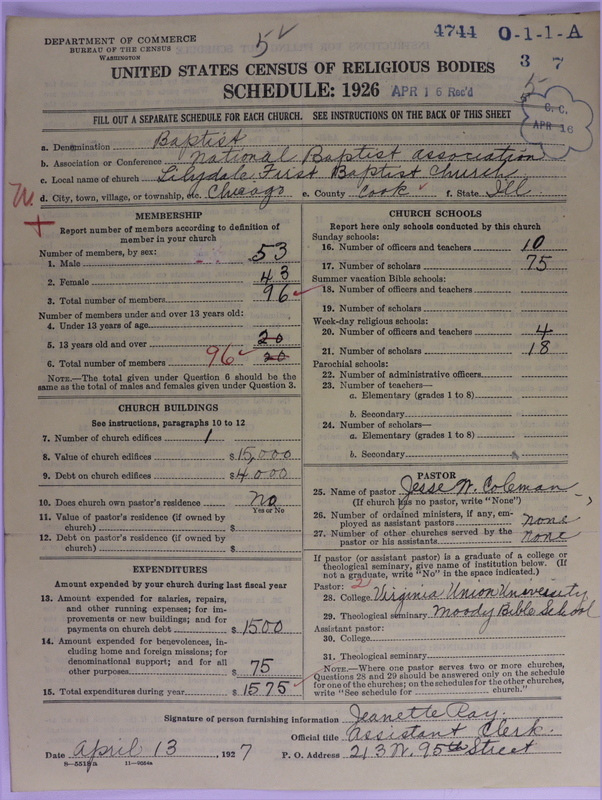 DEPARTMENT OF COMMERCE
BUREAU OF THE CENSUS
WASHINGTON
4744 O-1-1-A
3 7
UNITED STATES CENSUS OF RELIGIOUS BODIES
SCHEDULE: 1926 APR 16 Rec'd
C. C.
APR 16
FILL OUT A SEPARATE SCHEDULE FOR EACH CHURCH. SEE INSTRUCTIONS ON THE BACK OF THIS SHEET
a. Denomination Baptist
b. Association or Conference National Baptist association
c. Local name of church Lilydale First Baptist Church
d. City, town, village, or township, etc. Chicago e. County Cook f. State Ill
MEMBERSHIP
Report number of members according to definition of member in your church
Number of members, by sex:
1. Male 53
2. Female 43
3. Total number of members 96
Number of members under and over 13 years old:
4. Under 13 years of age
5. 13 years old and over 20
6. Total number of members 96 20
NOTE.—The total given under Question 6 should be the same as the total of males and females given under Question 3.
CHURCH BUILDINGS
See instructions, paragraphs 10 to 12
7. Number of church edifices 1
8. Value of church edifices $15,000
9. Debt on church edifices $4000
10. Does church own pastor's residence No
Yes or No
11. Value of pastor's residence (if owned by church) $
12. Debt on pastor's residence (if owned by church) $
EXPENDITURES
Amount expended by your church during last fiscal year
13. Amount expended for salaries, repairs, and other running expenses; for improvements or new buildings; and for payments on church debt $ 1500
14. Amount expended for benevolences, including home and foreign missions; for denominational support; and for all other purposes $ 75
15. Total expenditures during year $ 1575
CHURCH SCHOOLS
Report here only schools conducted by this church
Sunday schools:
16. Number of officers and teachers 10
17. Number of scholars 75
Summer vacation Bible schools:
18. Number of officers and teachers
19. Number of scholars
Week-day religious schools:
20. Number of officers and teachers 4
21. Number of scholars 18
Parochial schools:
22. Number of administrative officers
23. Number of teachers—
a. Elementary (grades 1 to 8)
b. Secondary
24. Number of scholars—
a. Elementary (grades 1 to 8)
b. Secondary
PASTOR
25. Name of pastor Jesse W. Coleman
(If church has no pastor, write "None")
26. Number of ordained ministers, if any, employed as assistant pastors none
27. Number of other churches served by the pastor or his assistants none
If pastor (or assistant pastor) is a graduate of a college or theological seminary, give name of institution below. (If not a graduate, write "No" in the space indicated.)
Pastor: 2
28. College Virginia Union University
29. Theological seminary Moody Bible School
Assistant pastor:
30. College
31. Theological seminary
NOTE.—Where one pastor serves two or more churches, Questions 28 and 29 should be answered only on the schedule for one of the churches; on the schedules for the other churches, write "See schedule for church."
Signature of person furnishing information Jeanette Ray.
Official title Assistant Clerk.
Date April 13, 1927 P. O. Address 213 W. 95th Street
11—9554a